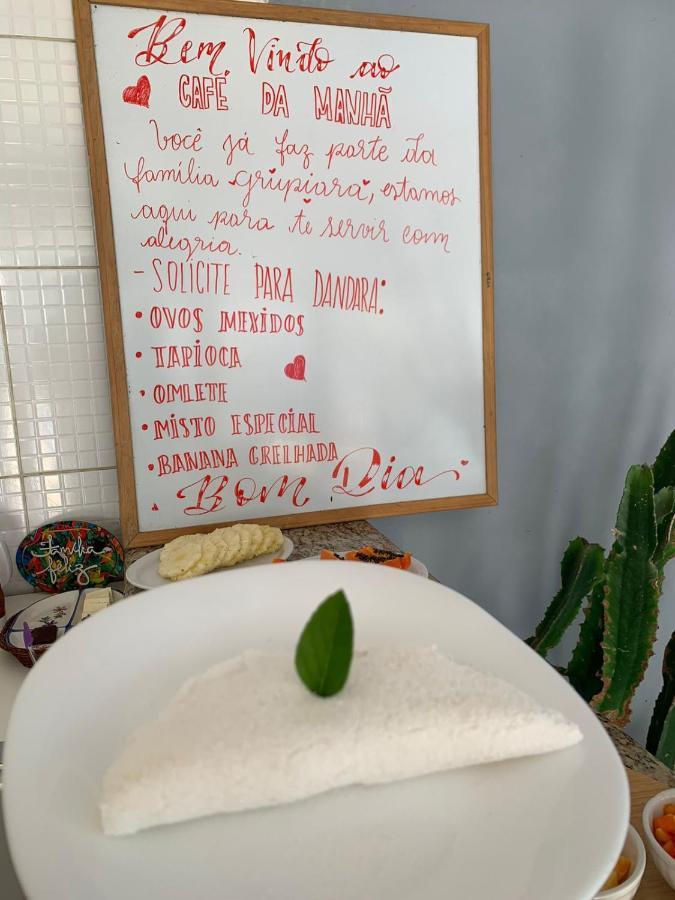 Bem Vindo ao
CAFÉ DA MANHÃ
Você já faz parte da
família grupiara, estamos
aqui para te servir com
alegria.
- SOLICITE PARA DANDARA:
• OVOS MEXIDOS
• TAPIOCA
• OMLETE
• MISTO ESPECIAL
• BANANA GRELHADA
Bom Dia
família
feliz